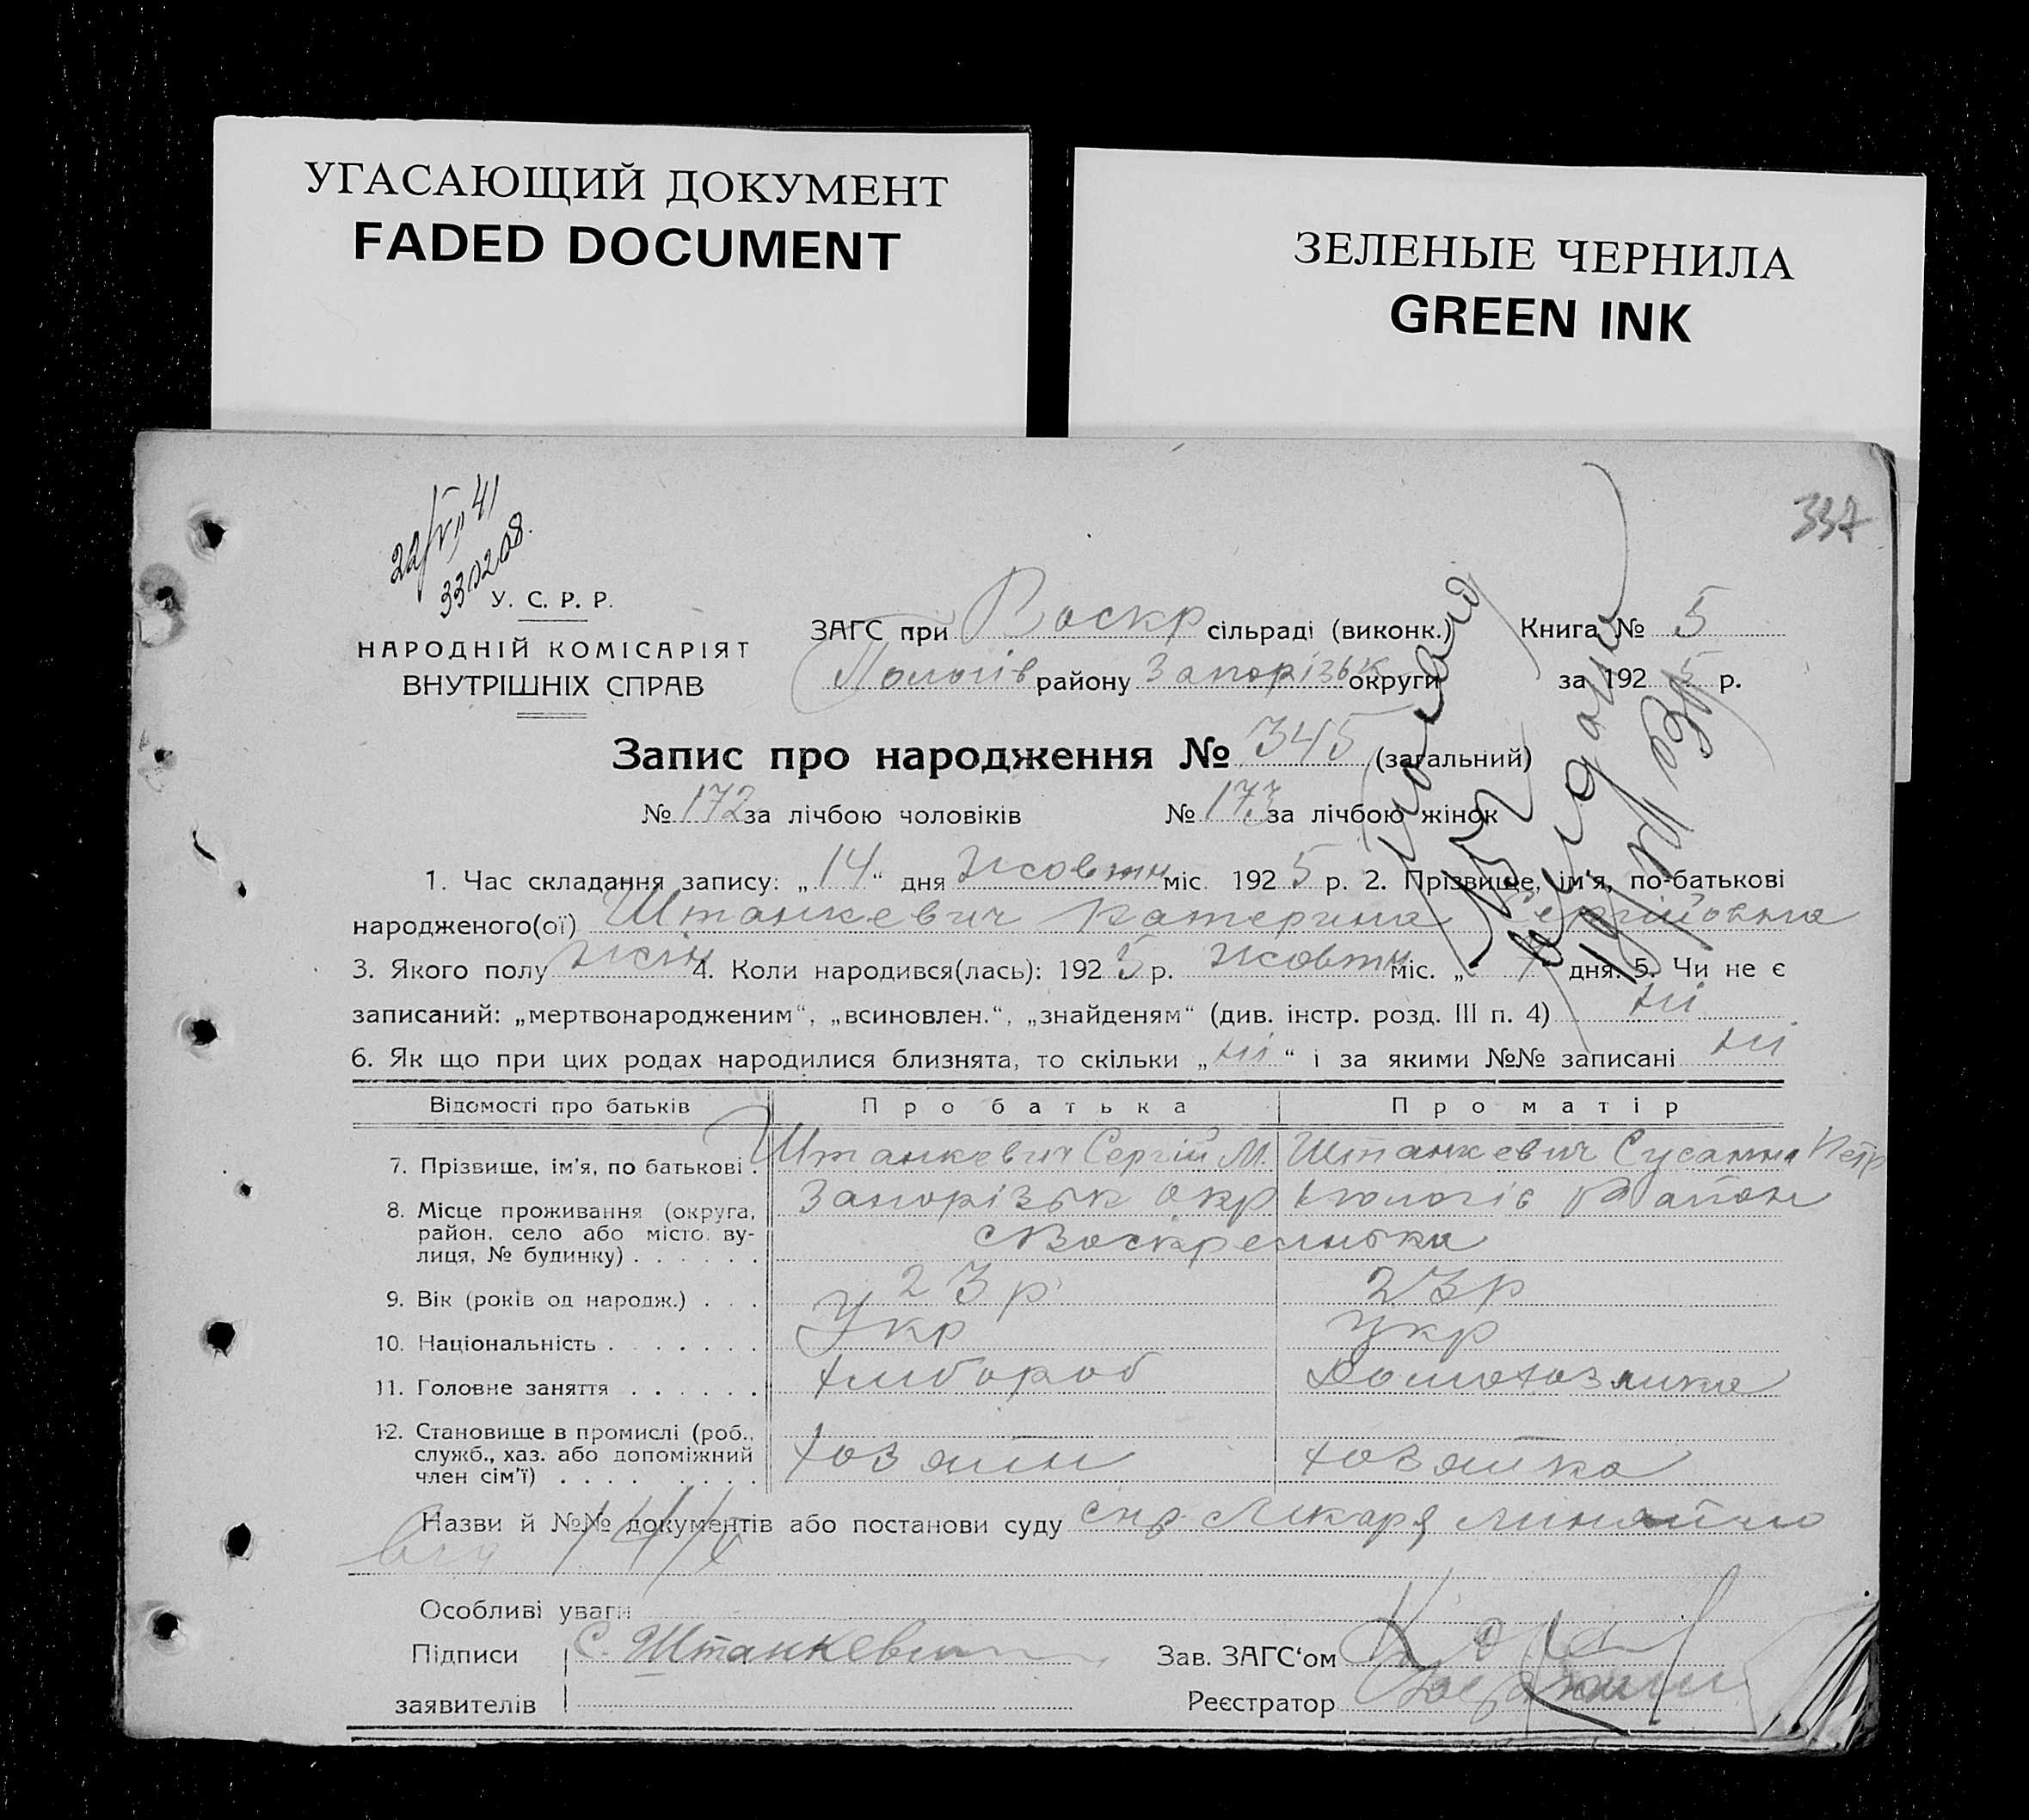 УГАСАЮЩИЙ ДОКУМЕНТ
FADED DOCUMENT
ЗЕЛЕНЫЕ ЧЕРНИЛА
GREEN INK
337
22/VII 41
У. С. Р. Р.
НАРОДНІЙ КОМІСАРІЯТ
ВНУТРІШНІХ СПРАВ
ЗАГС при Воскр сільраді (виконк.) Книга № 5
Пологів району Запорізьк округи за 1925 р.
Запис про народження № 345 (загальний)
№ 172 за лічбою чоловіків № 173 за лічбою жінок
1. Час складання запису: „14“ дня Жовтн міс. 1925 р. 2. Прізвище, ім'я, по-батькові
народженого(ої) Штанкевич Катерина Сергійовна
3. Якого полу жін 4. Коли народився(лась): 1925 р. Жовтн міс. „ “ дня. 5. Чи не є
записаний: „мертвонародженим“, „всиновлен.“, „знайденям“ (див. інстр. розд. III п. 4) ні
6. Як що при цих родах народилися близнята, то скільки „ні“ і за якими №№ записані ні
Відомості про батьків Про батька Про матір
7. Прізвище, ім'я, по батькові . Штанкевич Сергій М. Штанкевич Сусанна Петр
8. Місце проживання (округа, Запорізьк окр Пологів Район
район, село або місто, ву- с Воскресенька
лиця, № будинку) . . . . . .
9. Вік (років од народж.) . . . 23 р 23 р
10. Національність . . . . . . . Укр Укр
11. Головне заняття . . . . . . хлібороб Домохозяйка
12. Становище в промислі (роб.,
служб., хаз. або допоміжний хозяин хозяйка
член сім'ї) . . . . . . . .
Назви й №№ документів або постанови суду Лікаря
Особливі уваги
Підписи С. Штанкевич Зав. ЗАГС‘ом
заявителів Реєстратор